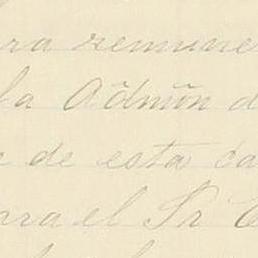 ra remune
la Admōn d
e de esta ca
ara el Sr C